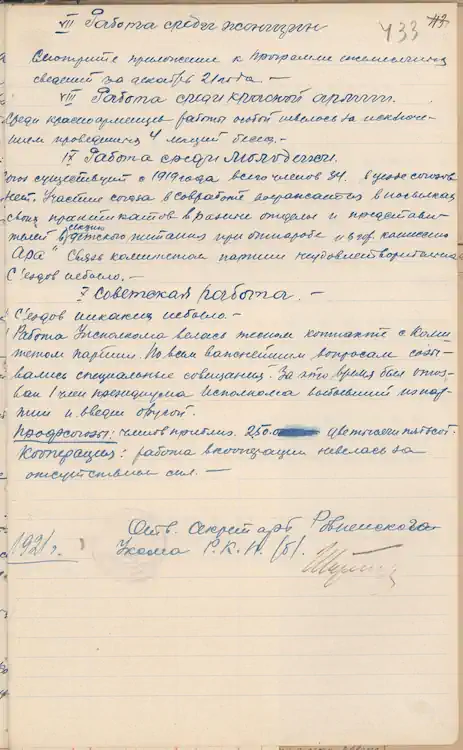 433
VII Работа среди женщин
Смотрите приложение к программе ежемесячных
сведений за декабрь 21 года. —
VIII Работа среди красной армии.
Среди красноармейцев работы особой невелось за исключе-
нием проведенных 4 лекций бесед. —
IX Работа среди молодежи.
существует с 1919 года всего членов 34. в уезде союзов
нет. Участие союза в совработе выражается в посылках
своих практикантов в разные отделы и представи-
телей в секцию детского питания при отнаробе и в
Ара" Связь комитетом партии неудовлетворительна
С'ездов небыло. —
X Советская работа. —
С'ездов никаких небыло. —
Работа Уисполкома велась тесном контакте с Коми-
тетом партии. По всем важнейшим вопросам созы-
вались специальные совещания. За это время был отоз-
ван 1 член президиума Исполкома выбывший из пар-
тии и введен другой.
Профсоюзы: членов приблиз. 2500 две тысячи пятьсот.
Кооперация: работа в кооперации невелась за
отсутствием сил. —
Отв. Секретарь Ровненского
Укома Р.К.П. (б).
1921 г.